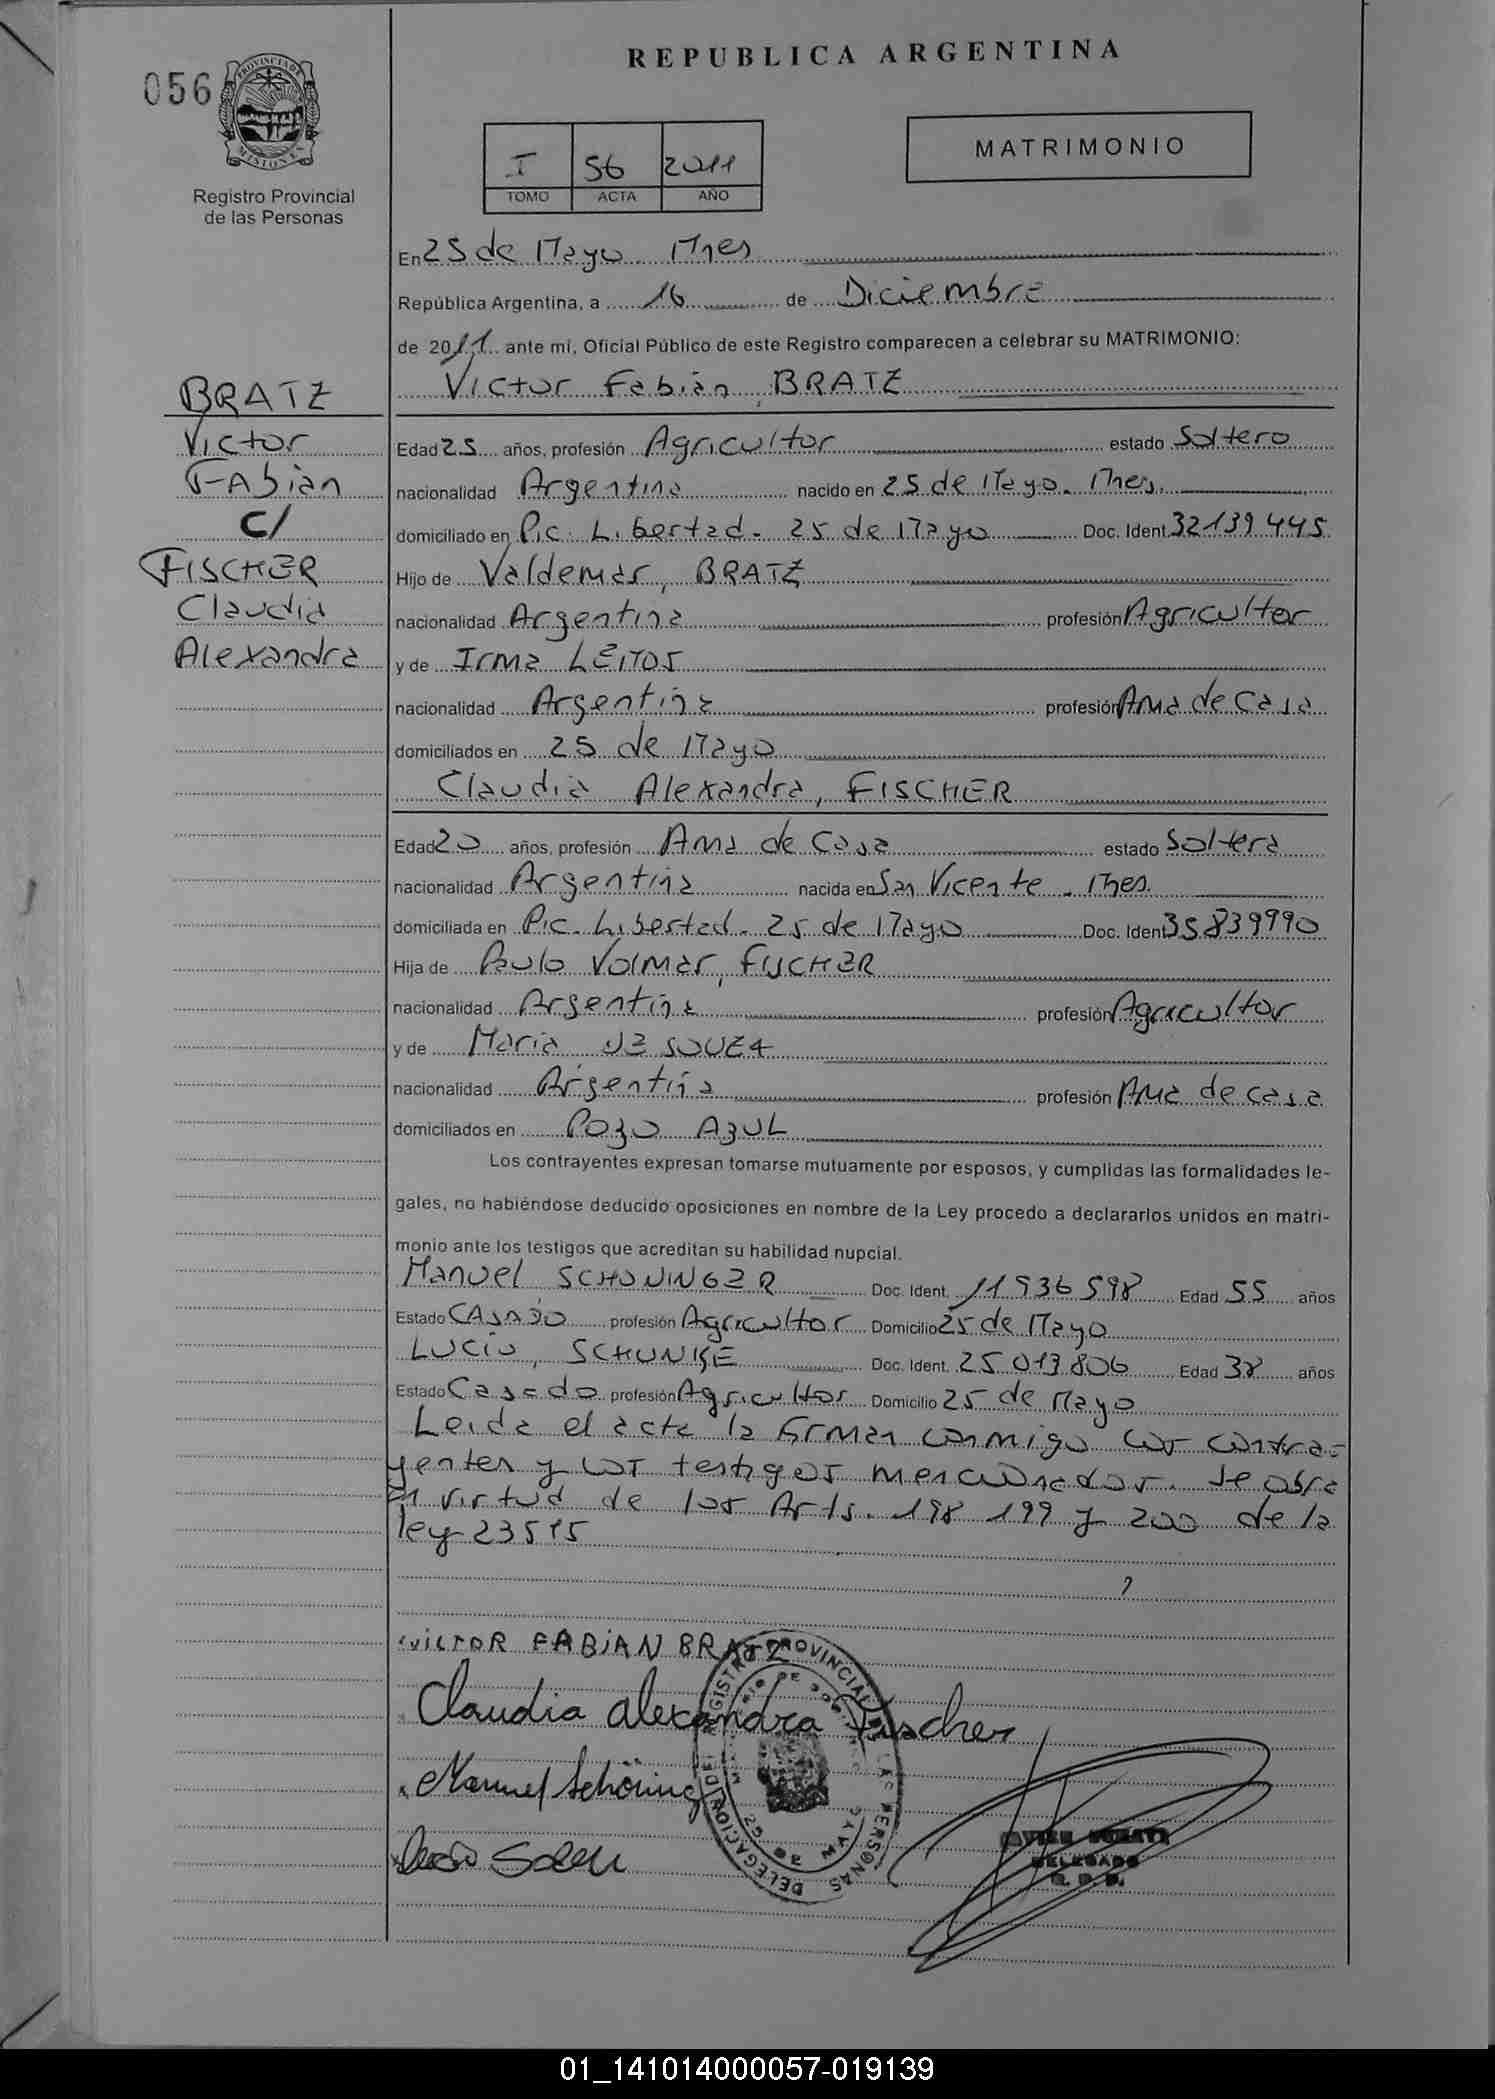 REPUBLICA ARGENTINA
056
PROVINCIA DE MISIONES
Registro Provincial
de las Personas
I 56 2011
TOMO ACTA AÑO
MATRIMONIO
En 25 de Mayo Mnes
República Argentina, a 16 de Diciembre
de 2011 ante mí, Oficial Público de este Registro comparecen a celebrar su MATRIMONIO:
Victor Fabián, BRATZ
BRATZ
Victor
FAbián
C/
FISCHER
Claudia
Alexandra
Edad 25 años, profesión Agricultor estado Soltero
nacionalidad Argentina nacido en 25 de Mayo. Mnes.
domiciliado en Pic. Libertad. 25 de Mayo Doc. Ident 32139445
Hijo de Valdemar, BRATZ
nacionalidad Argentina profesión Agricultor
y de Irma LEITOS
nacionalidad Argentina profesión Ama de Casa
domiciliados en 25 de Mayo
Claudia Alexandra, FISCHER
Edad 20 años, profesión Ama de Casa estado Soltera
nacionalidad Argentina nacida en San Vicente. Mnes.
domiciliada en Pic. Libertad. 25 de Mayo Doc. Ident 35839990
Hija de Paulo Volmar, FISCHER
nacionalidad Argentina profesión Agricultor
y de Maria DE SOUZA
nacionalidad Argentina profesión Ama de casa
domiciliados en Pozo Azul
Los contrayentes expresan tomarse mutuamente por esposos, y cumplidas las formalidades le-
gales, no habiéndose deducido oposiciones en nombre de la Ley procedo a declararlos unidos en matri-
monio ante los testigos que acreditan su habilidad nupcial.
Manuel SCHONINGER Doc. Ident. 11936598 Edad 55 años
Estado CASADO profesión Agricultor Domicilio 25 de Mayo
Lucio, SCHUNKE Doc. Ident. 25.013.806 Edad 38 años
Estado Casado profesión Agricultor Domicilio 25 de Mayo
Leida el acta la firman conmigo los contra-
yentes y los testigos mencionados. Se obra
en virtud de los Arts. 198 199 y 200 de la
ley 23515
VICTOR FABIAN BRATZ
Claudia Alexandra Fischer
Manuel Schöning
REGISTRO PROVINCIAL DE LAS PERSONAS
DELEGACION DE
25 DE MAYO
DELEGADO
01_141014000057-019139